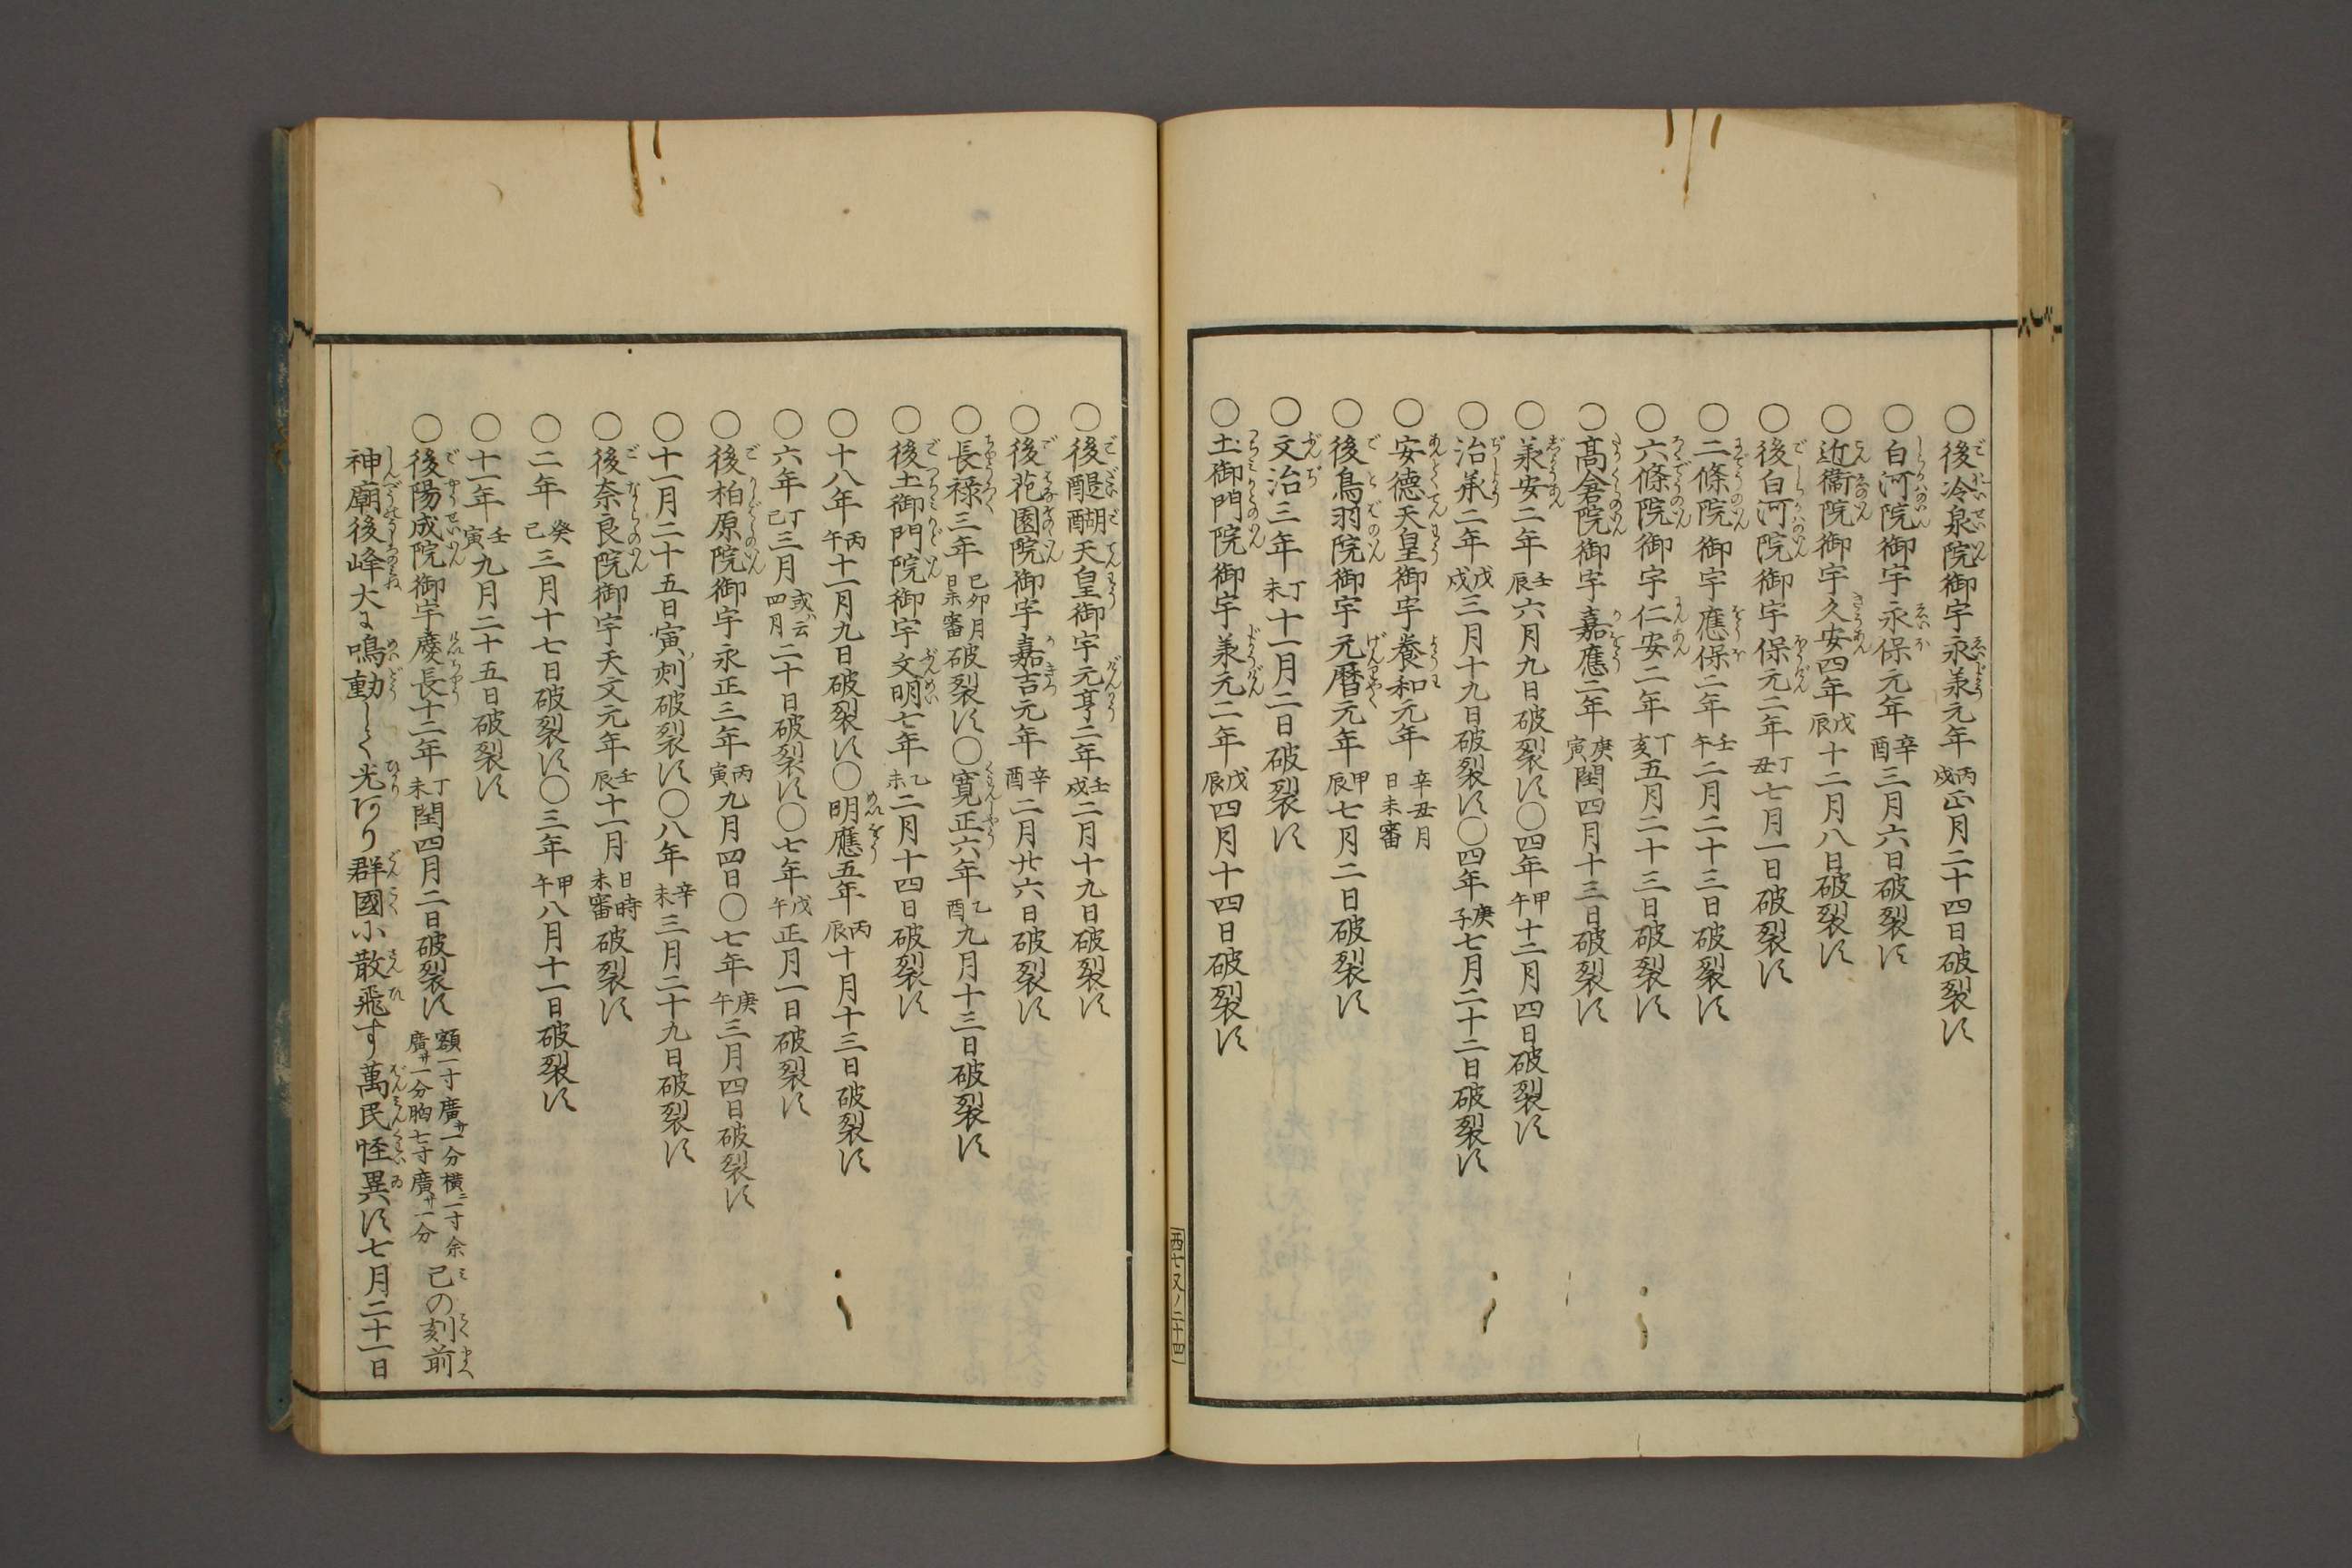 〇後冷泉院御宇永美元年丙戌正月二十四日破裂す
〇白河院御宇永保元年辛酉三月六日破裂す
〇近衞院御宇久安四年戊辰十二月八日破裂す
〇後白河院御宇保元二年丁丑七月一日破裂す
〇二條院御宇應保二年壬午二月二十三日破裂す
〇六條院御宇仁安二年丁亥五月二十三日破裂す
〇髙倉院御宇嘉應二年庚寅閏四月十三日破裂す
〇承安二年壬辰六月九日破裂す〇四年甲午十二月四日破裂す
〇治承二年戊戌三月十九日破裂す〇四年庚子七月二十二日破裂す
〇安德天皇御宇養和元年辛丑月日未審
〇後鳥羽院御宇元曆元年甲辰七月二日破裂す
〇文治三年丁未十一月二日破裂す
〇土御門院御宇承元二年戊辰四月十四日破裂す
西七又ノ二十四
〇後醍醐天皇御宇元亨二年壬戌二月十九日破裂す
〇後花園院御宇嘉吉元年辛酉二月廿六日破裂す
〇長祿三年己卯月日未審破裂す〇寛正六年乙酉九月十三日破裂す
〇後土御門院御宇文明七年乙未二月十四日破裂す
〇十八年丙午十一月九日破裂す〇明應五年丙辰十月十三日破裂す
〇六年丁巳三月或ハ云四月二十日破裂す〇七年戊午正月一日破裂す
〇後柏原院御宇永正三年丙寅九月四日〇七年庚午三月四日破裂す
〇十一月二十五日寅ノ刻破裂す〇八年辛未三月二十九日破裂す
〇後奈良院御宇天文元年壬辰十一月日時未審破裂す
〇二年癸巳三月十七日破裂す〇三年甲午八月十一日破裂す
〇十一年壬寅九月二十五日破裂す
〇後陽成院御宇慶長十二年丁未閏四月二日破裂す額一寸廣サ一分横ニ一寸余廣サ一分胸七寸廣サ一分巳の刻前
神廟後峰大に鳴動して光あり群國に散飛す萬民怪異す七月二十一日